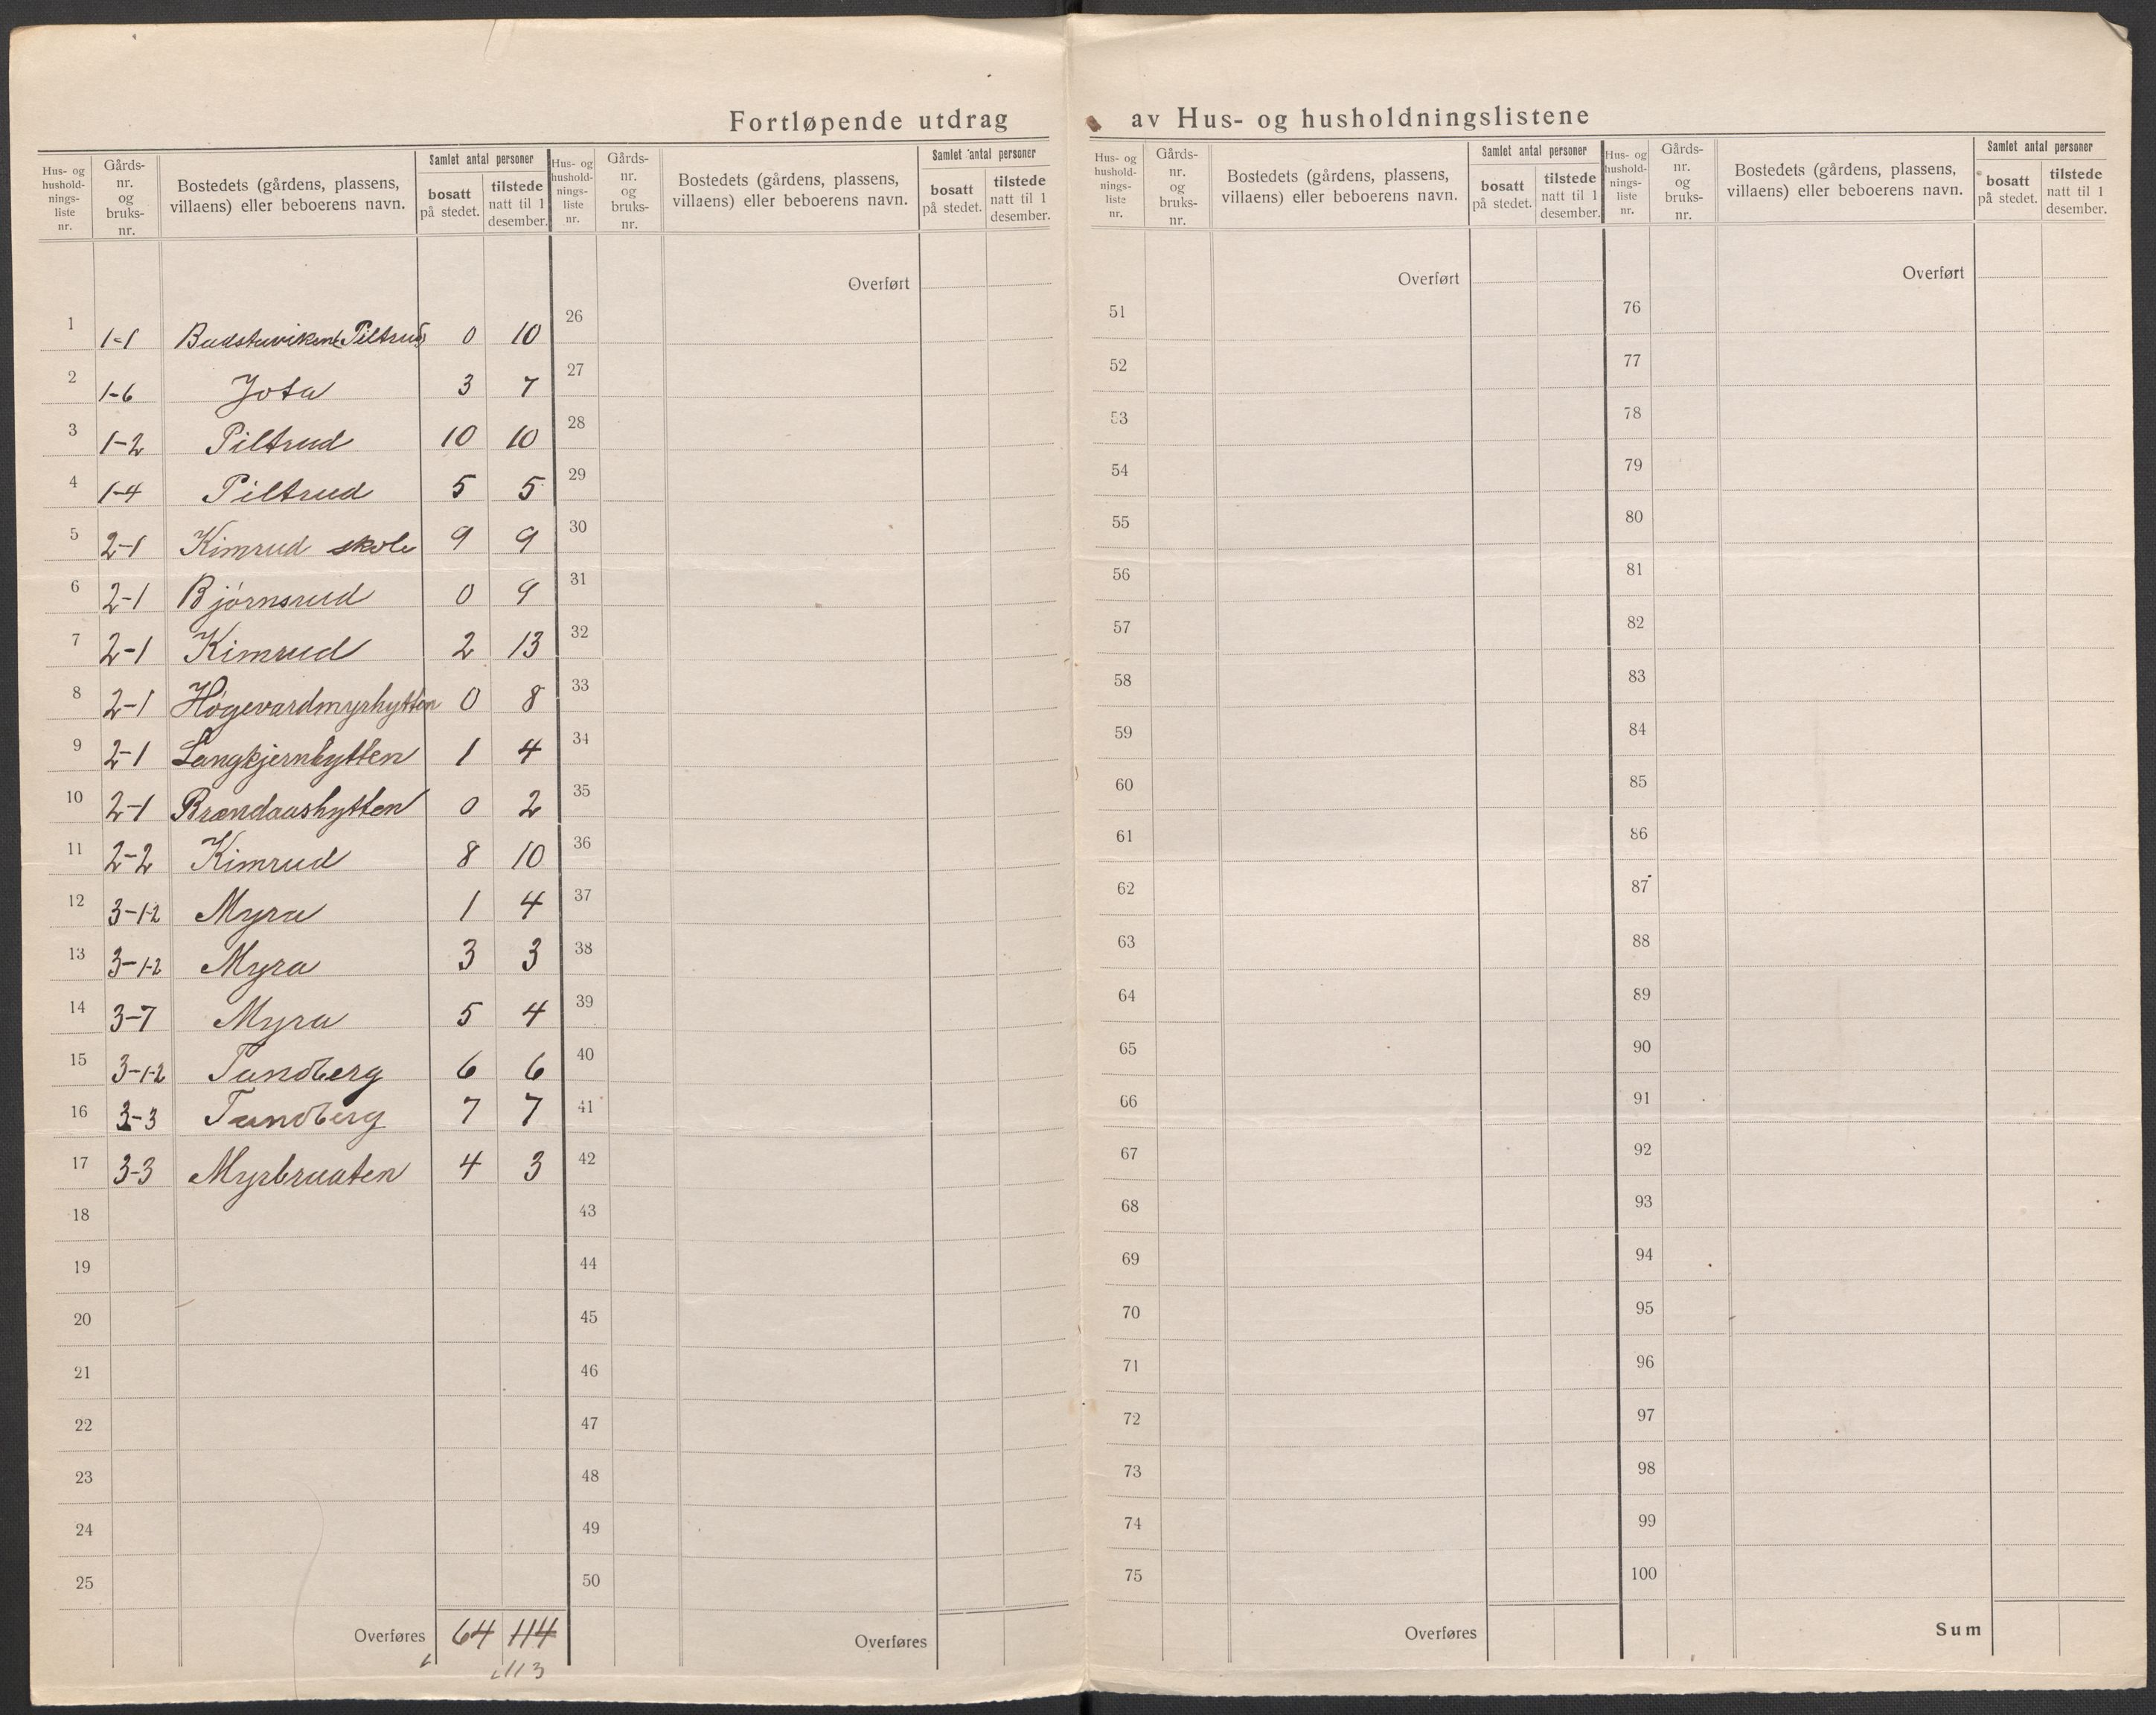 Fortløpende utdrag av Hus- og husholdningslistene
Hus- og hushold-nings-liste nr. | Gårds-nr. og bruks-nr. | Bostedets (gårdens, plassens, villaens) eller beboerens navn. | Samlet antal personer | bosatt på stedet. | tilstede natt til 1 desember.
Hus- og hushold-nings-liste nr. | Gårds-nr. og bruks-nr. | Bostedets (gårdens, plassens, villaens) eller beboerens navn. | Samlet antal personer | bosatt på stedet. | tilstede natt til 1 desember.
Hus- og hushold-nings-liste nr. | Gårds-nr. og bruks-nr. | Bostedets (gårdens, plassens, villaens) eller beboerens navn. | Samlet antal personer | bosatt på stedet. | tilstede natt til 1 desember.
Hus- og hushold-nings-liste nr. | Gårds-nr. og bruks-nr. | Bostedets (gårdens, plassens, villaens) eller beboerens navn. | Samlet antal personer | bosatt på stedet. | tilstede natt til 1 desember.
Overført Overført Overført
1 1-1 Badstuviken (Piltrud) 0 10 26 51 76
2 1-6 Jota 3 7 27 52 77
3 1-2 Piltrud 10 10 28 53 78
4 1-4 Piltrud 5 5 29 54 79
5 2-1 Kimrud skole 9 9 30 55 80
6 2-1 Bjørnsrud 0 9 31 56 81
7 2-1 Kimrud 2 13 32 57 82
8 2-1 Høgevardmyrhytten 0 8 33 58 83
9 2-1 Langkjernhytten 1 4 34 59 84
10 2-1 Brændaashytten 0 2 35 60 85
11 2-2 Kimrud 8 10 36 61 86
12 3-1-2 Myra 1 4 37 62 87
13 3-1-2 Myra 3 3 38 63 88
14 3-7 Myra 5 4 39 64 89
15 3-1-2 Tandberg 6 6 40 65 90
16 3-3 Tandberg 7 7 41 66 91
17 3-3 Myrbraaten 4 3 42 67 92
18 43 68 93
19 44 69 94
20 45 70 95
21 46 71 96
22 47 72 97
23 48 73 98
24 49 74 99
25 50 75 100
Overføres 64 114 Overføres Overføres Sum
113